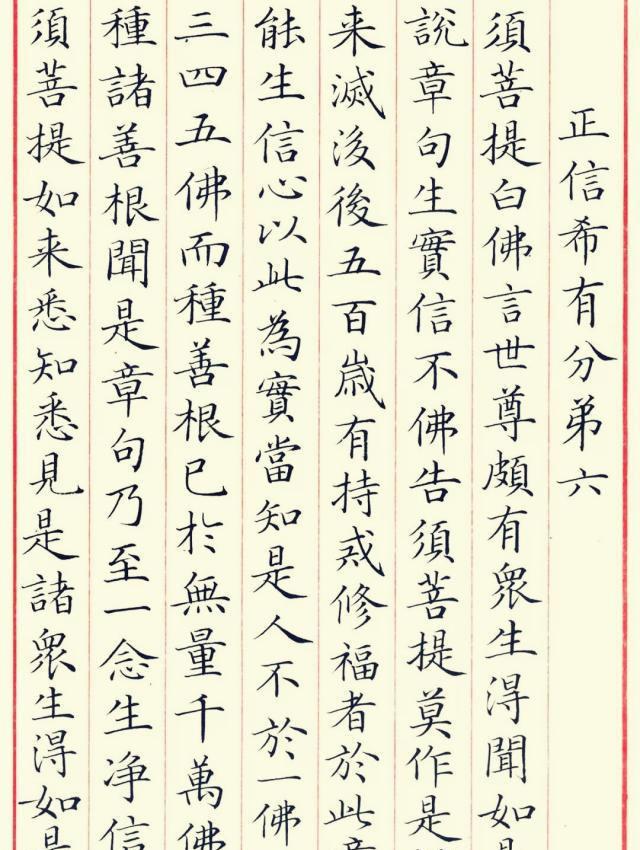 正信希有分弟六
須菩提白佛言世尊頗有衆生得聞如
說章句生實信不佛告須菩提莫作是
来滅後後五百歲有持戒修福者於此
能生信心以此為實當知是人不於一佛
三四五佛而種善根已於無量千萬佛
種諸善根聞是章句乃至一念生净信
須菩提如来悉知悉見是諸衆生得如